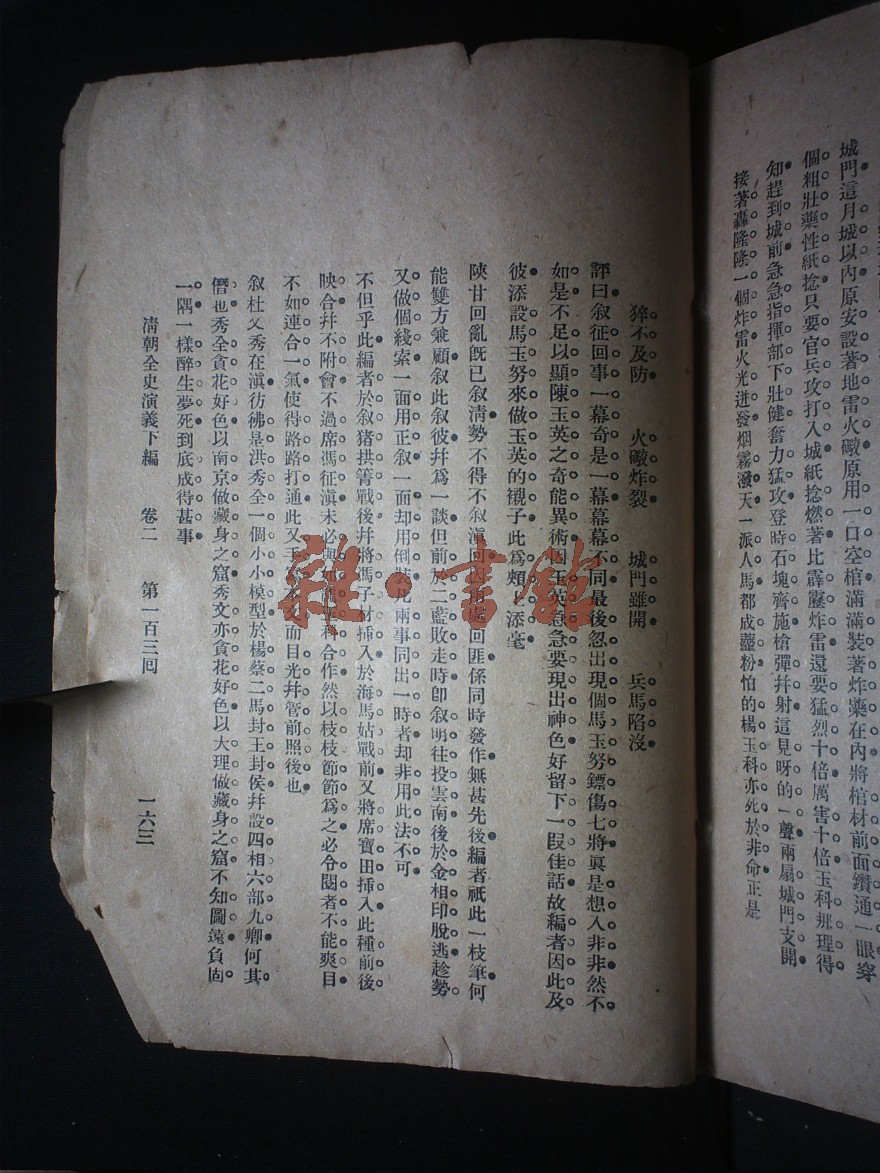 城門這月城以內原安設著地雷火礮原用一口空棺滿滿裝著炸藥在內將棺材前面鑽通一眼穿
個粗壯藥性紙捻只要官兵攻打入城紙捻燃著比霹靂炸雷還要猛烈十倍厲害十倍玉科那理得
知趕到城前急急指揮部下壯健奮力猛攻登時石塊齊施槍彈幷射這見呀的一聲兩扇城門支開
接著轟隆隆一個炸雷火光迸發烟霧潑天一派人馬都成虀粉怕的楊玉科亦死於非命正是
猝不及防 火礮炸裂 城門雖開 兵馬陷沒
評曰叙征回事一幕奇是一幕幕幕不同最後忽出現個馬玉努鏢傷七將真是想入非非然不
如是不足以顯陳玉英之奇能異術因玉英急急要現出神色好留下一段佳話故編者因此及
彼添設馬玉努來做玉英的襯子此為頰上添毫
陝甘回亂旣已叙淸勢不得不叙滇回因兩處回匪係同時發作無甚先後編者祇此一枝筆何
能雙方兼顧叙此叙彼幷為一談但前於二藍敗走時卽叙明往投雲南後於金相印脫逃趁勢
又做個綫索一面用正叙一面却用倒裝凡兩事同出一時者却非用此法不可
不但乎此編者於叙猪拱箐戰後幷將馮子材揷入於海馬姑戰前又將席寶田揷入此種前後
映合幷不附會不過席馮征滇未必與合作然以枝枝節節為之必令閱者不能爽目
不如連合一氣使得路路打通此又手面目光幷管前照後也
叙杜文秀在滇彷彿是洪秀全一個小小模型於楊蔡二馬封王封侯幷設四相六部九卿何其
僭也秀全貪花好色以南京做藏身之窟秀文亦貪花好色以大理做藏身之窟不知圖遠負固
一隅一樣醉生夢死到底成得甚事
淸朝全史演義下編 卷二 第一百三回 一六三
雜·書館